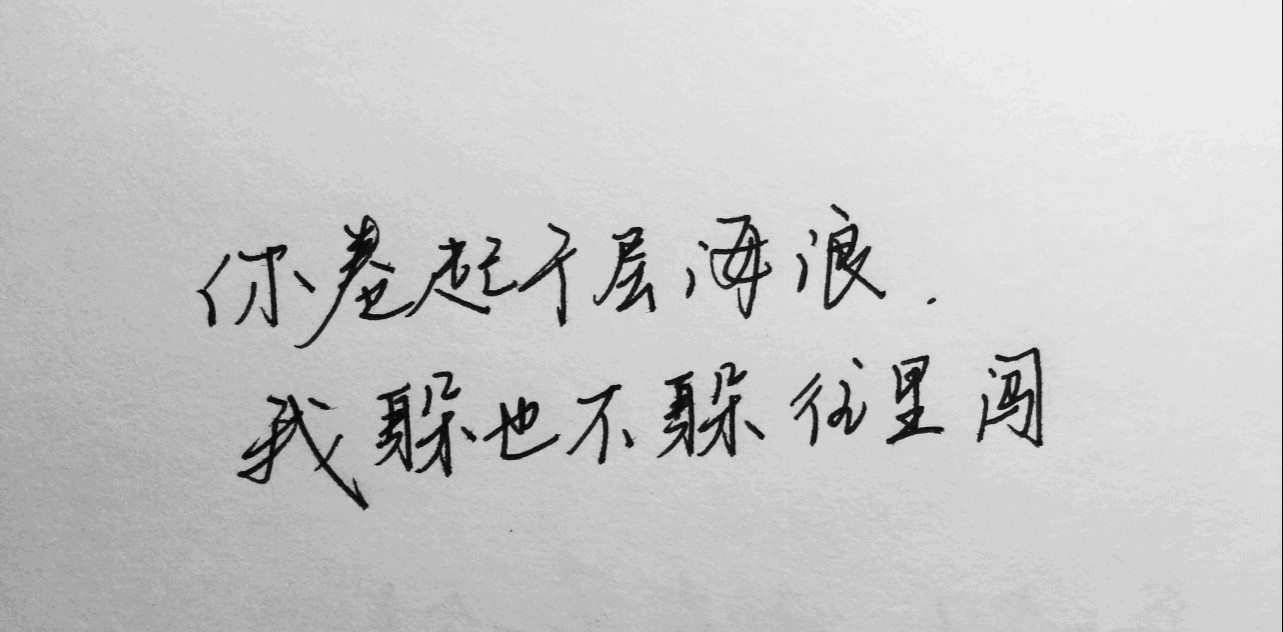 你卷起千层海浪.
我躲也不躲往里闯